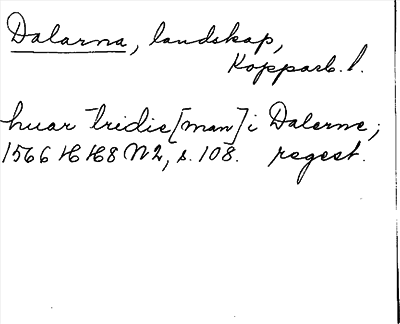 Dalarna, landskap,
Kopparb. l.
huar tridie [man] i Dalerne;
1566 HH8 N2, s. 108. regest.